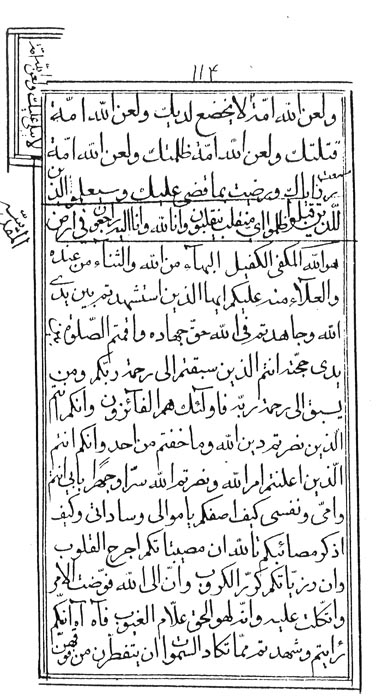 ١١٤
ولعن الله امّة لا يخضع لديك ولعن الله امّة
قتلتك ولعن الله امّة ظلمتك ولعن الله امّة
سمعت
اياك ورضيت بما قضى عليك وسيعلم الذين
ظلموا اى منقلب ينقلبون وانا لله وانا اليه راجعون فى ارض
هو الله المكفى الكفيل البهاء من الله والثناء من عنده
والعلاء منه عليكم ايها الذين استشهدتم بين يدى
الله وجاهدتم فى الله حق جهاده واقمتم الصلوة
يدى حجته انتم الذين سبقتم الى رحمة ربكم ومن
يسبق الى رحمة ربه فاولئك هم الفائزون وانكم انتم
الذين نصرتم دين الله وما خفتم من احد وانكم انتم
الذين اعلنتم امر الله ونصرتم الله سرّا وجهرا بابى انتم
وامّى ونفسى كيف اصفكم يا موالى وساداتى وكيف
اذكر مصائبكم تالله ان مصيباتكم اجرح القلوب
وان رزياتكم كرب الكروب وانّ الى الله فوّضت الامر
واتكلت عليه وانه لهو الحق علّام الغيوب فآه آه انكم
رايتم وشهدتم ممّا تكاد السموات ان يتفطرن من فوقهن